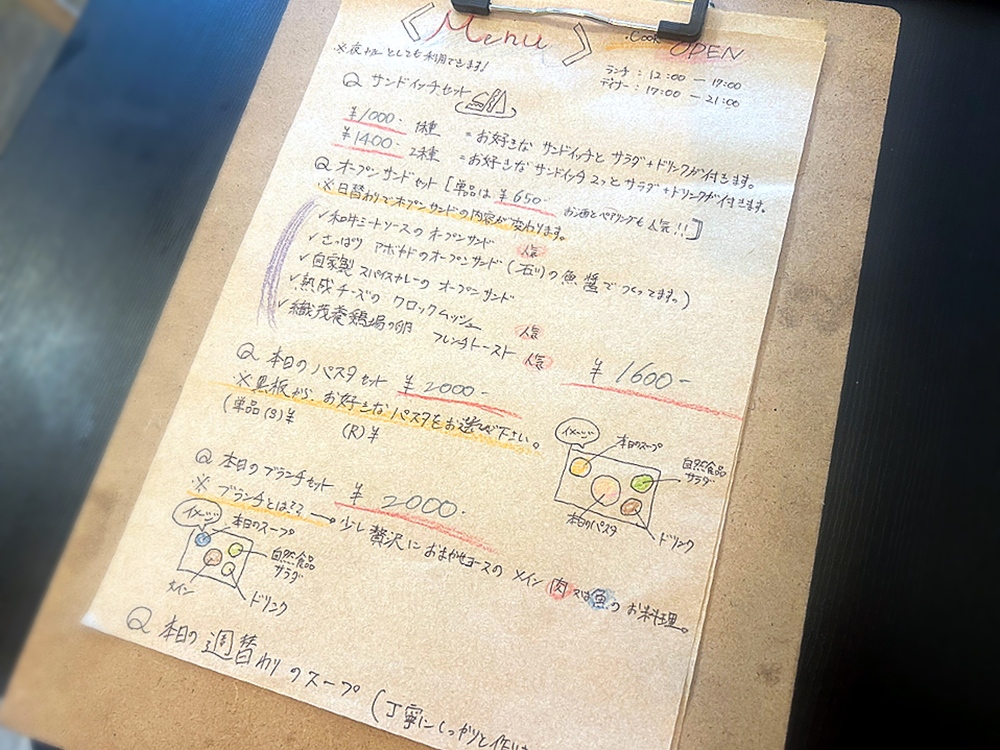 〈Menu〉
.Cook OPEN
ランチ：12:00 — 17:00
ディナー：17:00 — 21:00
※夜カフェとしても利用できます!
Q サンドイッチセット
¥1000- 1種 = お好きな サンドイッチと サラダ+ドリンクが付きます。
¥1400- 2種 = お好きな サンドイッチ2つと サラダ+ドリンクが付きます。
Q オープンサンドセット [単品は ¥650- お酒とペアリングも人気!!]
※日替わりでオープンサンドの内容が変わります。
✓和牛ミートソースの オープンサンド 人気
✓さっぱり アボカドのオープンサンド (石川の魚醤でつくってます。)
✓自家製 スパイスカレーの オープンサンド
✓熟成チーズの クロックムッシュ 人気
✓織茂養鶏場の卵 フレンチトースト 人気
¥1600-
Q 本日のパスタセット ¥2000-
※黒板から、お好きなパスタをお選び下さい。
(単品(S)¥ (R)¥
イメージ
本日のスープ
自然食品
サラダ
本日のパスタ
ドリンク
Q 本日のブランチセット ¥2000-
※ブランチとは?? → 少し贅沢におまかせコースの メイン 肉又は魚のお料理。
イメージ
本日のスープ
自然食品
サラダ
メイン
ドリンク
Q 本日の週替わりのスープ (丁寧にしっかりと作り